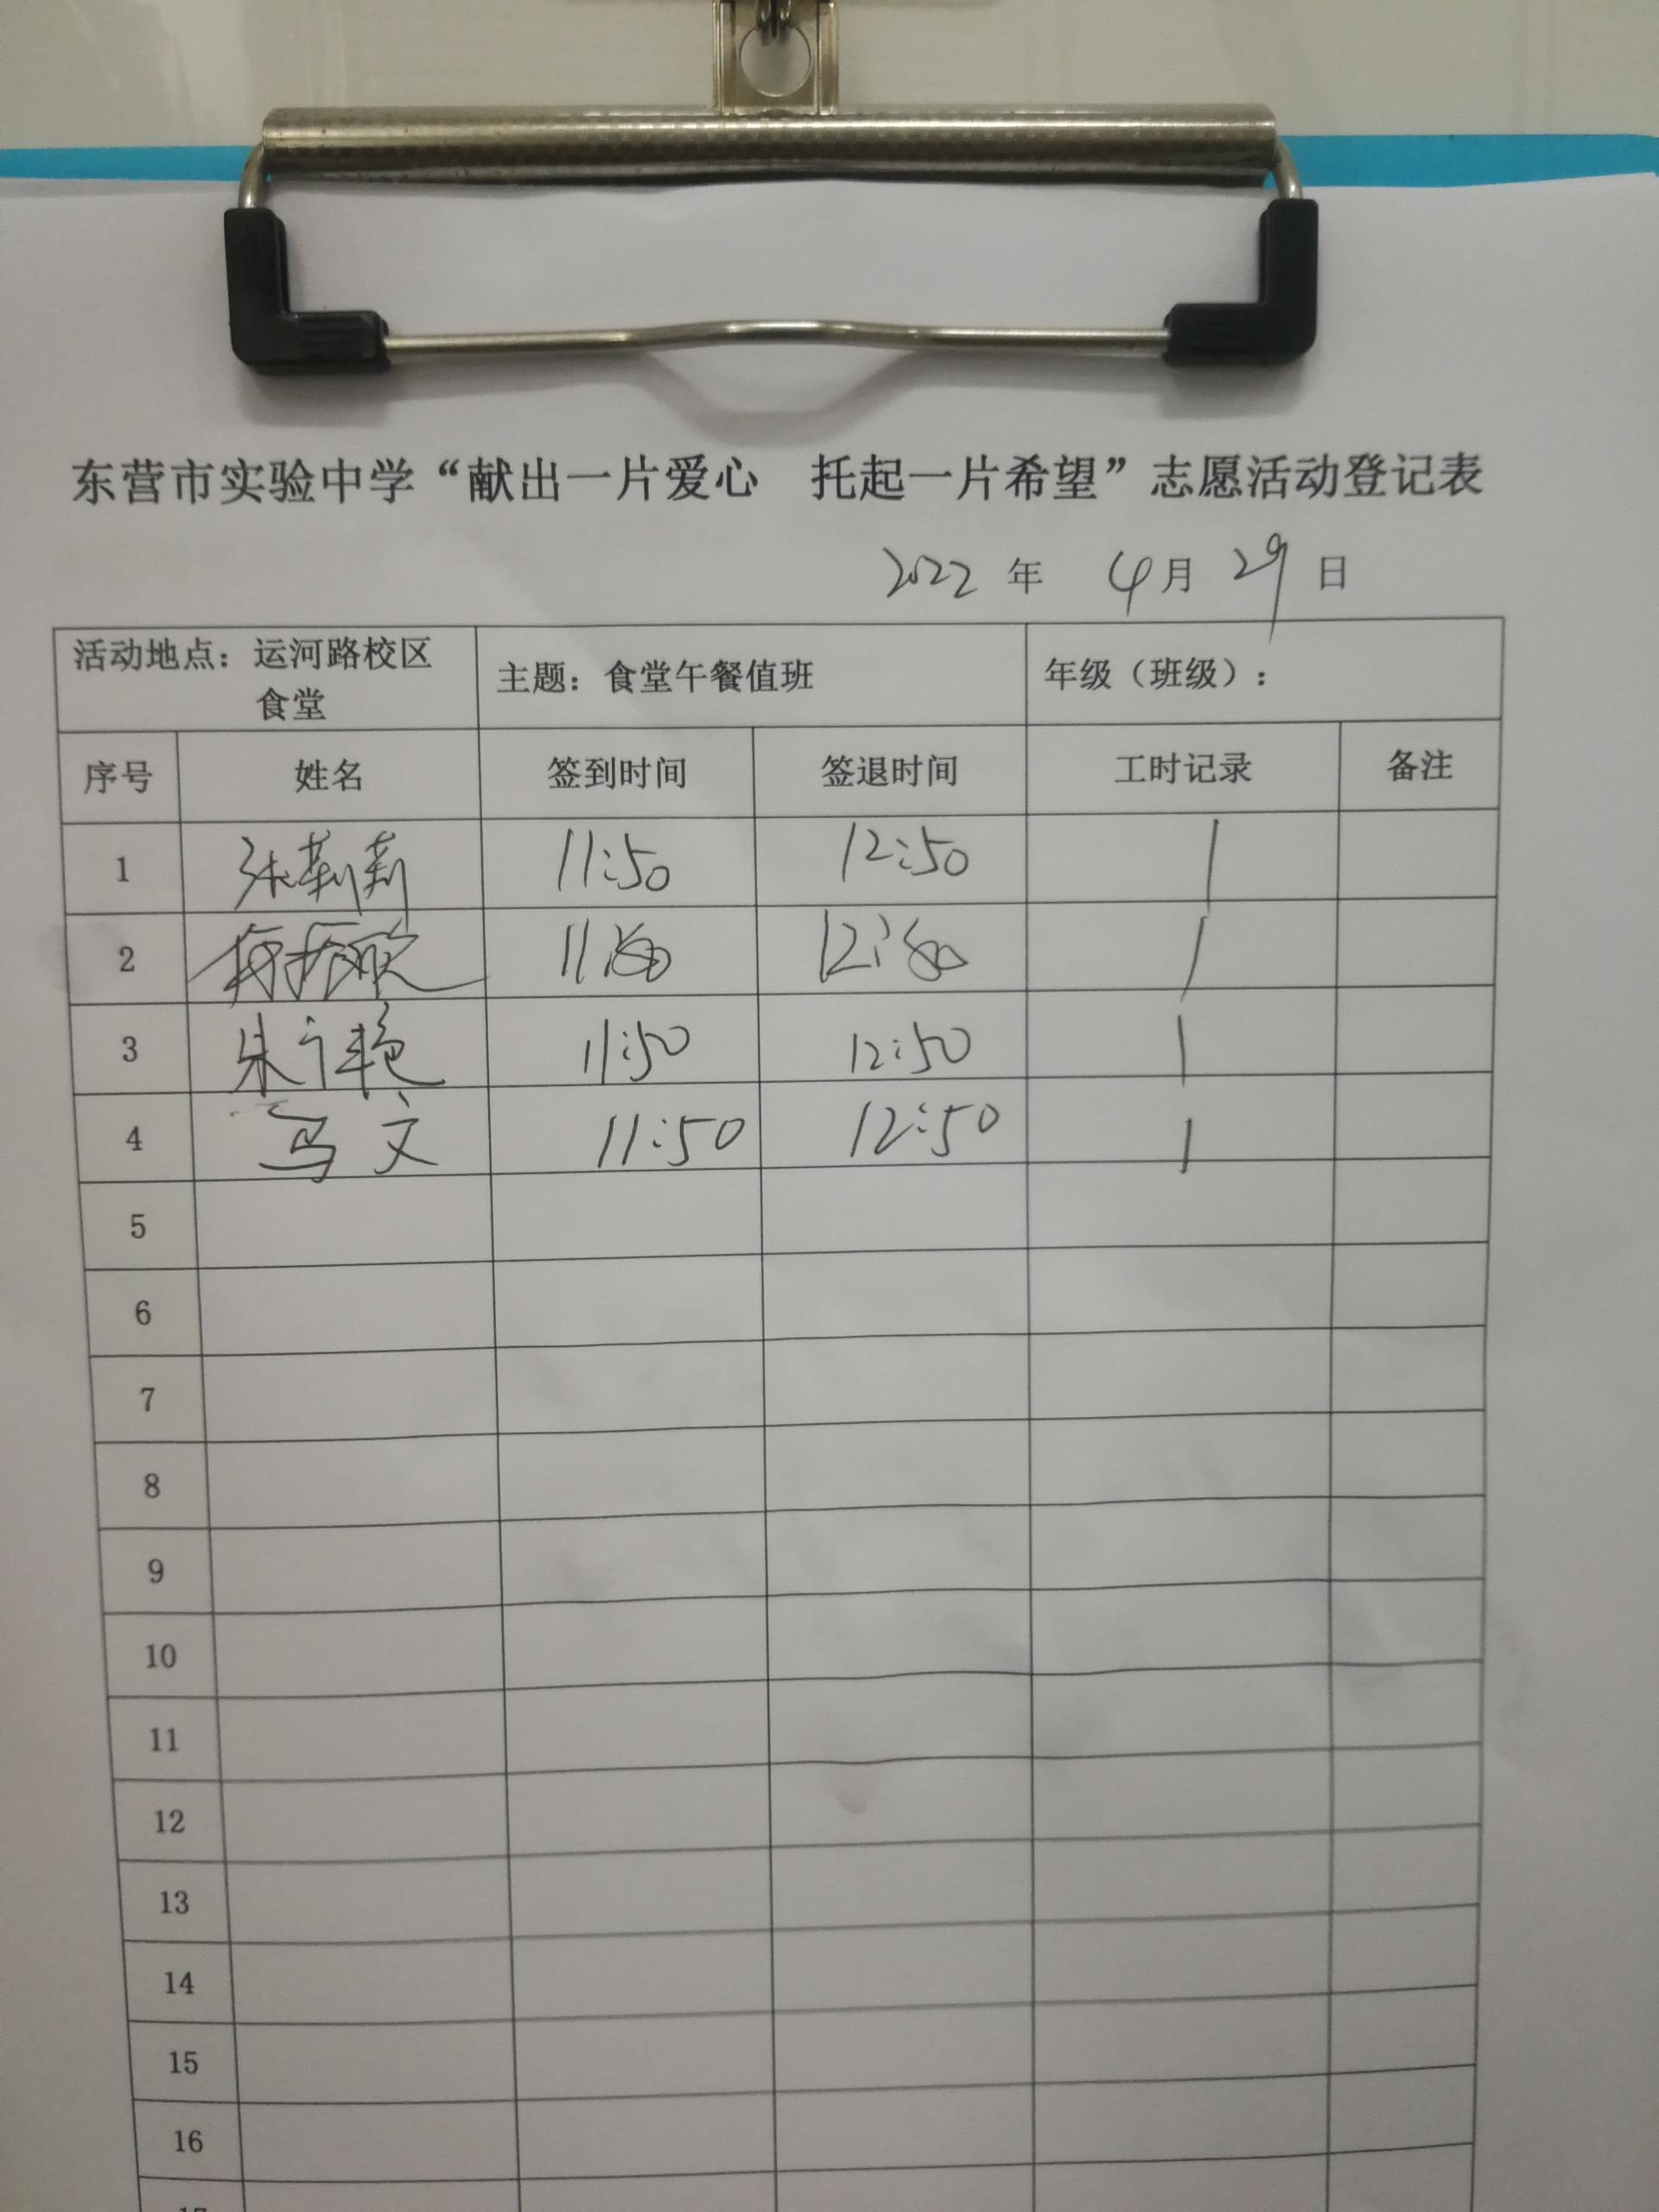 东营市实验中学“献出一片爱心 托起一片希望”志愿活动登记表
2022 年 4 月 29 日
活动地点：运河路校区 食堂 主题：食堂午餐值班 年级（班级）：
序号 姓名 签到时间 签退时间 工时记录 备注
1 张莉莉 11:50 12:50 1
2 1
3 朱 艳 11:50 12:50 1
4 马文 11:50 12:50 1
5
6
7
8
9
10
11
12
13
14
15
16
17